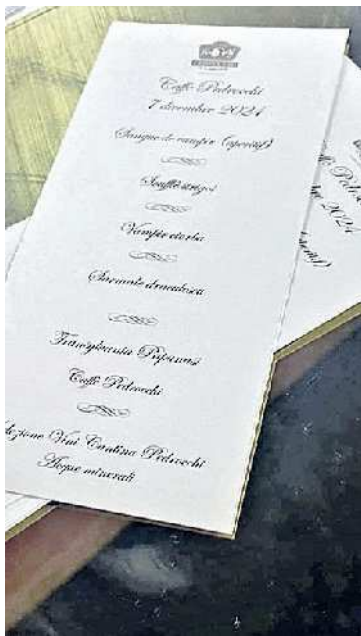 Caffè Pedrocchi
7 dicembre 2024
Sangue de vampir (aperitif)
Soufflè strigoi
Vampir ciorba
Sarmale
Transylvania Papanasi
Caffè Pedrocchi
lezione Vini Cantina Pedrocchi
Acque minerali
2024